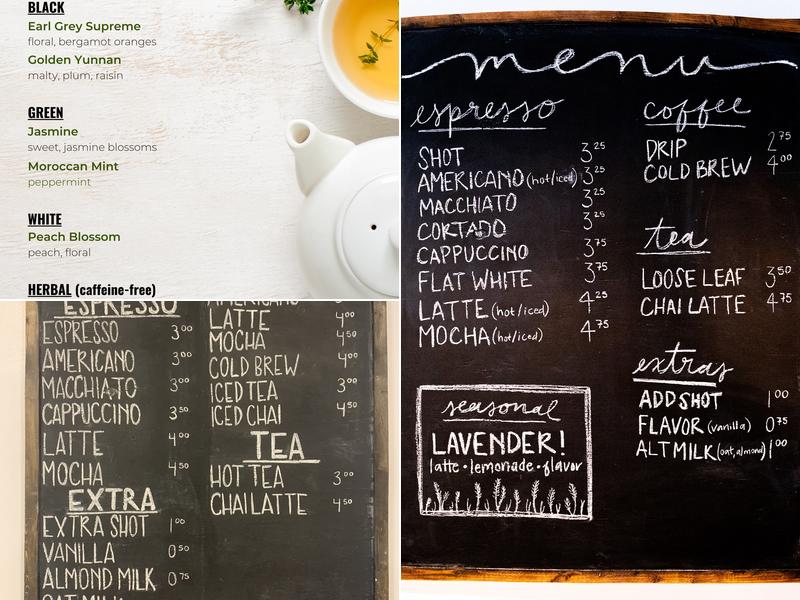 BLACK
Earl Grey Supreme
floral, bergamot oranges
Golden Yunnan
malty, plum, raisin
GREEN
Jasmine
sweet, jasmine blossoms
Moroccan Mint
peppermint
WHITE
Peach Blossom
peach, floral
HERBAL (caffeine-free)
menu
espresso
SHOT 3 25
AMERICANO (hot/iced) 3 25
MACCHIATO 3 25
CORTADO 3 25
CAPPUCCINO 3 75
FLAT WHITE 3 75
LATTE (hot/iced) 4 25
MOCHA (hot/iced) 4 75
seasonal
LAVENDER!
latte • lemonade • flavor
coffee
DRIP 2 75
COLD BREW 4 00
tea
LOOSE LEAF 3 50
CHAI LATTE 4 75
extras
ADD SHOT 1 00
FLAVOR (vanilla) 0 75
ALT MILK (oat, almond) 1 00
ESPRESSO
ESPRESSO 3 00
AMERICANO 3 00
MACCHIATO 3 00
CAPPUCCINO 3 50
LATTE 4 00
MOCHA 4 50
EXTRA
EXTRA SHOT 1 00
VANILLA 0 50
ALMOND MILK 0 75
OAT MILK
AMERICANO 3 00
LATTE 4 00
MOCHA 4 50
COLD BREW 4 00
ICED TEA 3 00
ICED CHAI 4 50
TEA
HOT TEA 3 00
CHAI LATTE 4 50